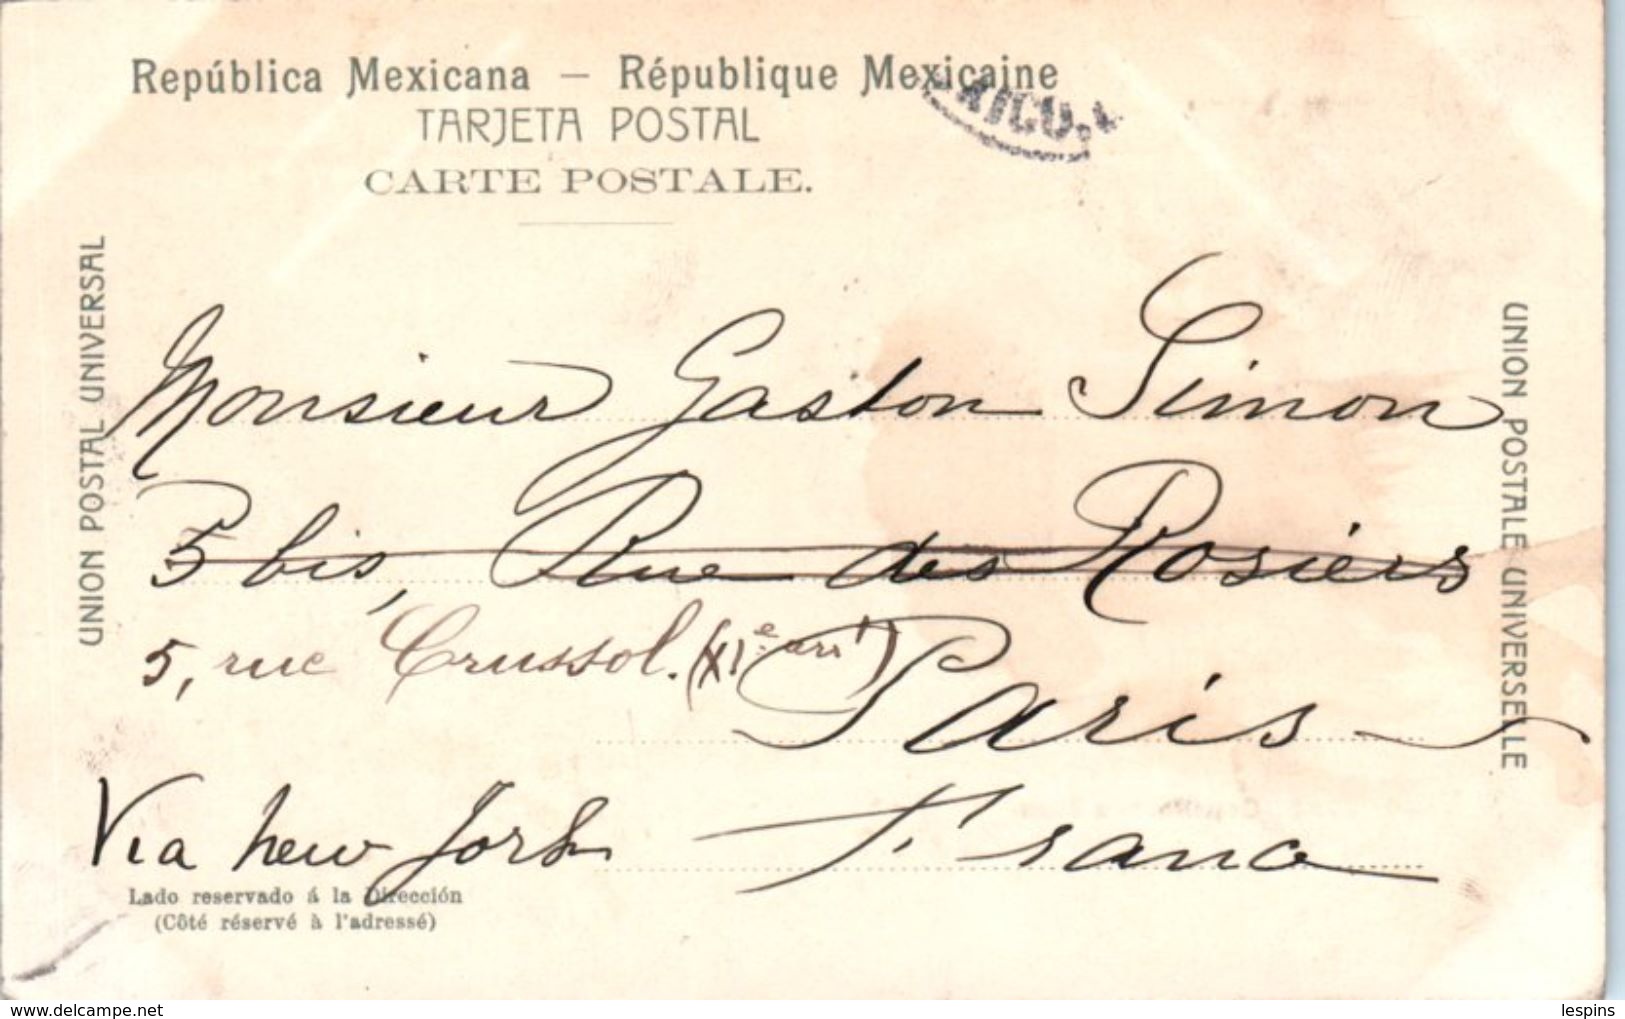 República Mexicana — République Mexicaine
TARJETA POSTAL
CARTE POSTALE.
UNION POSTAL UNIVERSAL
UNION POSTALE UNIVERSELLE
Monsieur Gaston Simon
5 bis, Rue des Rosiers
5, rue Crussol. (XIe arrt)
Paris
Via New York
France
Lado reservado á la Dirección
(Côté réservé à l'adressé)
delcampe.net
lespins